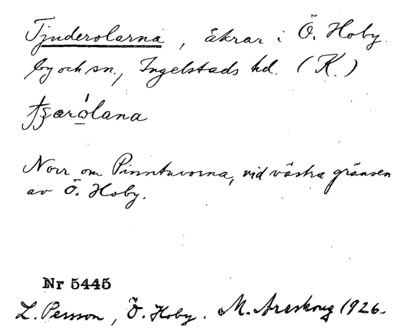 Tjuderolarna, åkrar i Ö. Hoby
by och sn., Ingelstads hd. (K.)
Norr om Pinntuvorna, vid västra gränsen
av Ö. Hoby.
Nr 5445
L. Persson, Ö. Hoby. M. Areskoug 1926.